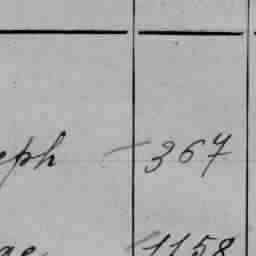 eph – 367
1158